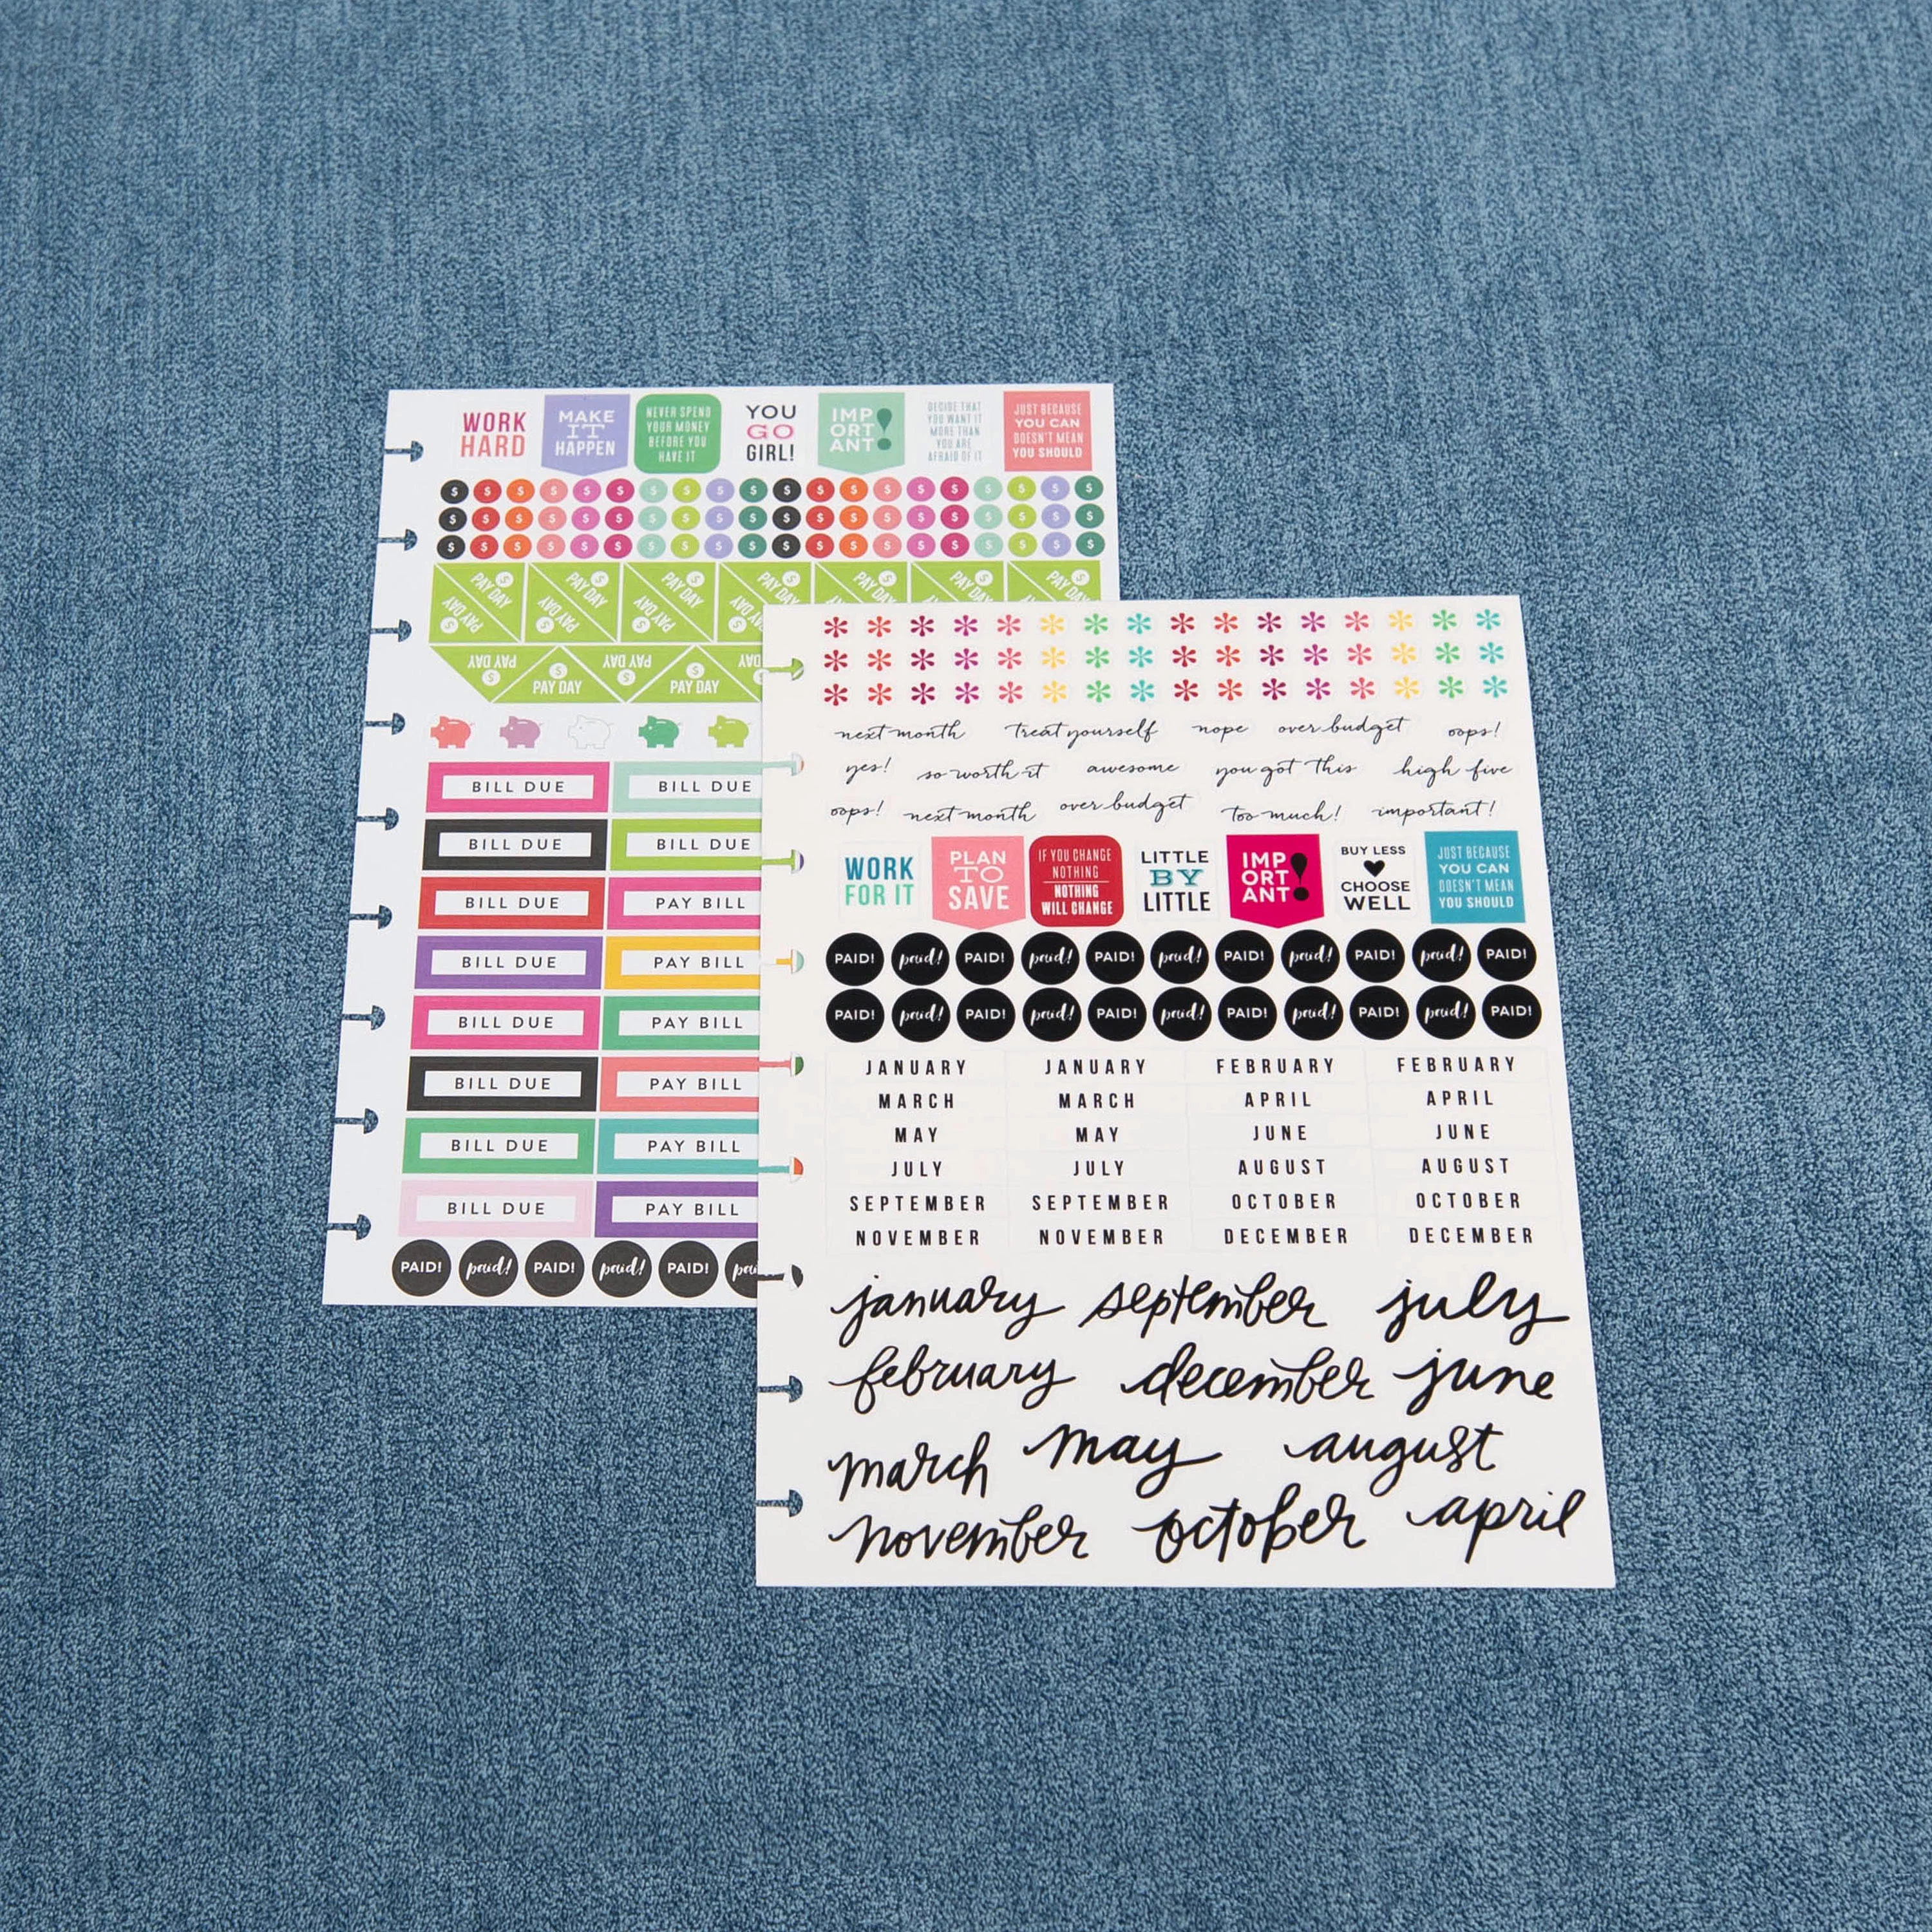 WORK
HARD
MAKE
IT
HAPPEN
NEVER SPEND
YOUR MONEY
BEFORE YOU
HAVE IT
YOU
GO
GIRL!
IMP
ORT
ANT!
DECIDE THAT
YOU WANT IT
MORE THAN
YOU ARE
AFRAID OF IT
JUST BECAUSE
YOU CAN
DOESN'T MEAN
YOU SHOULD
$ $ $ $ $ $ $ $ $ $ $ $ $ $ $ $ $ $ $ $
$ $ $ $ $ $ $ $ $ $ $ $ $ $ $ $ $ $ $ $
$ $ $ $ $ $ $ $ $ $ $ $ $ $ $ $ $ $ $ $
PAY DAY $ PAY DAY $ PAY DAY $ PAY DAY $ PAY DAY $ PAY DAY $ PAY DAY $
PAY DAY $ PAY DAY $ PAY DAY $
PAY DAY $ PAY DAY $ PAY DAY $ PAY DAY $
BILL DUE BILL DUE
BILL DUE BILL DUE
BILL DUE PAY BILL
BILL DUE PAY BILL
BILL DUE PAY BILL
BILL DUE PAY BILL
BILL DUE PAY BILL
BILL DUE PAY BILL
PAID! paid! PAID! paid! PAID!
next month treat yourself nope over budget oops!
yes! so worth it awesome you got this high five
oops! next month over budget too much! important!
WORK
FOR IT
PLAN
TO
SAVE
IF YOU CHANGE
NOTHING
NOTHING
WILL CHANGE
LITTLE
BY
LITTLE
IMP
ORT
ANT!
BUY LESS
CHOOSE
WELL
JUST BECAUSE
YOU CAN
DOESN'T MEAN
YOU SHOULD
PAID! paid! PAID! paid! PAID! paid! PAID! paid! PAID! paid! PAID!
PAID! paid! PAID! paid! PAID! paid! PAID! paid! PAID! paid! PAID!
JANUARY JANUARY FEBRUARY FEBRUARY
MARCH MARCH APRIL APRIL
MAY MAY JUNE JUNE
JULY JULY AUGUST AUGUST
SEPTEMBER SEPTEMBER OCTOBER OCTOBER
NOVEMBER NOVEMBER DECEMBER DECEMBER
january september july
february december june
march may august
november october april